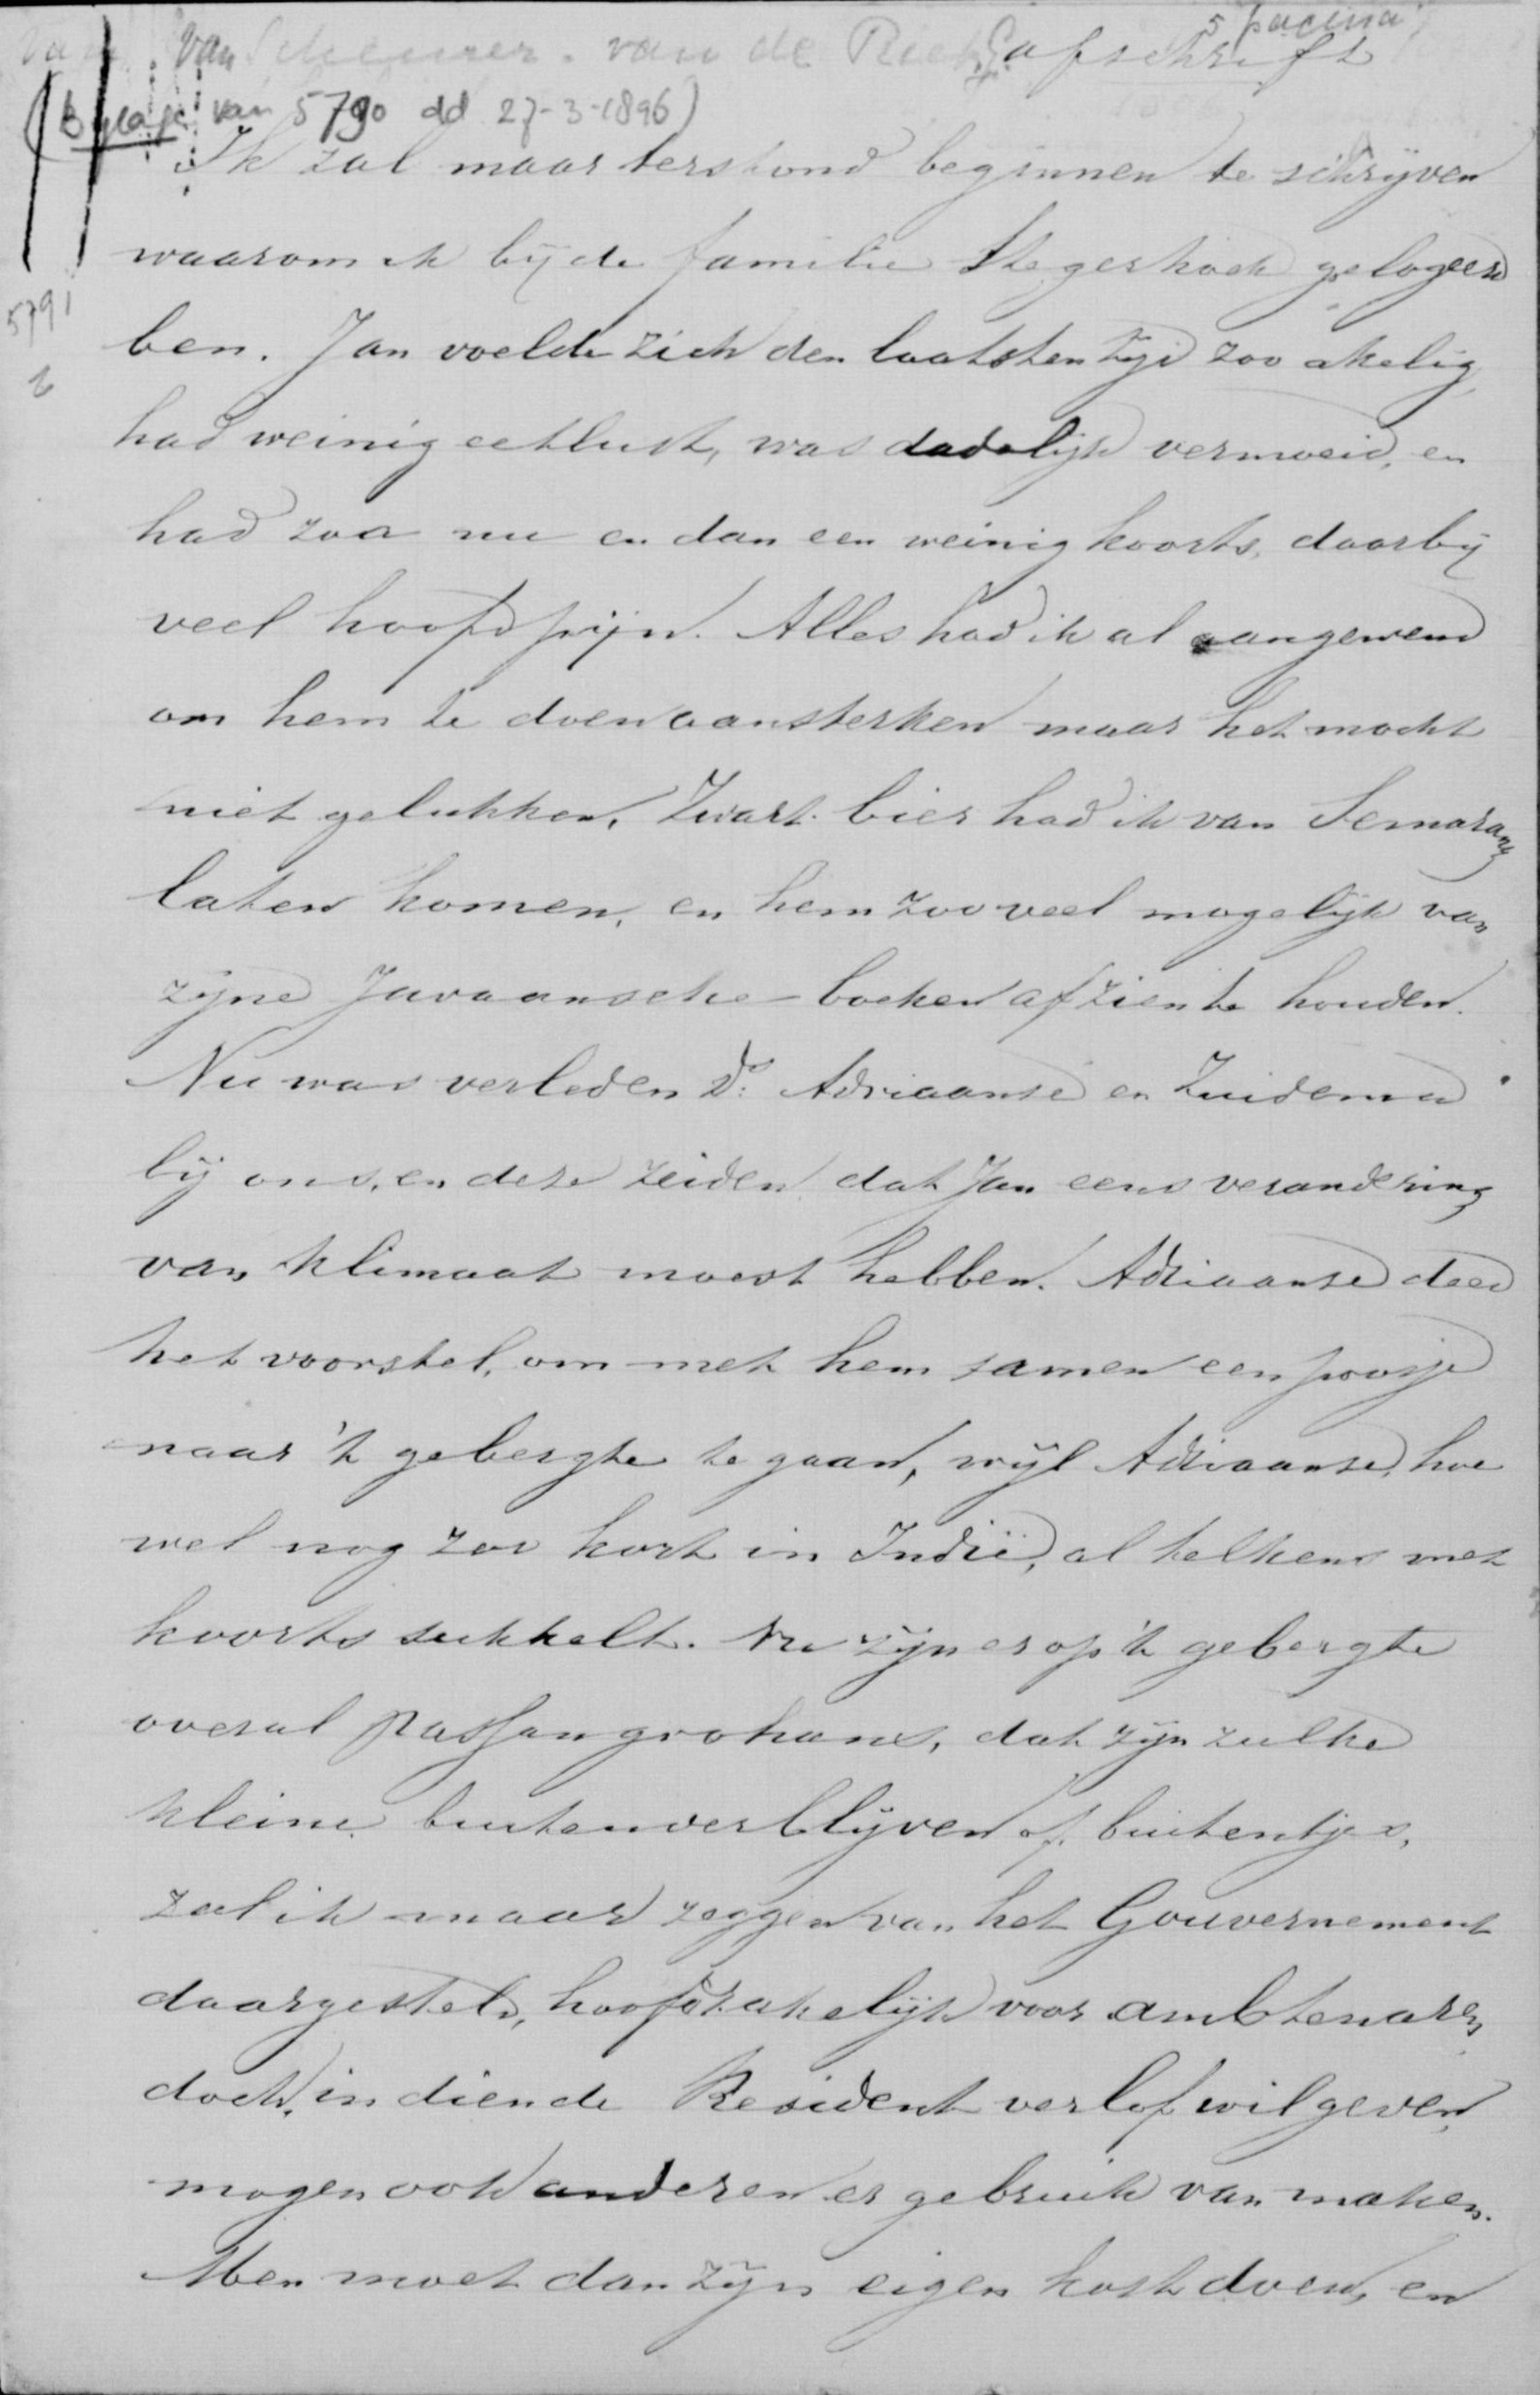 5 pacina
van Scheurer. van de Riet afschrift
(Bylage van 5790 dd 27-3-1896)
Ik zal maar terstond beginnen te schrijven
5791
waarom ik bij de familie Stegerhoek gelogeerd
ben. Jan voelde zich den laatsten tijd zoo akelig,
6
had weinig eetlust, was dadelijk vermoeid, en
had zoo nu en dan een weinig koorts, daarbij
veel hoofdpijn. Alles had ik al aangewend
om hem te doen aansterken maar het mocht
niet gelukken, Zwart bier had ik van Semarang
laten komen, en hem zooveel mogelijk van
zijne Javaansche boeken af zien te houden.
Nu was verleden Ds: Adriaanse en Zuidema
bij ons, en deze zeiden dat Jan eens verandering
van klimaat moest hebben. Adriaanse deed
het voorstel, om met hem samen een poosje
naar 't gebergte te gaan, wijl Adriaanse, hoe
wel nog zoo kort in Indië, al telkens met
koorts sukkelt. Nu zijn er op 't gebergte
overal passangrohans, dat zijn zulke
kleine buitenverblijven of buitentjes,
zal ik maar zeggen van het Gouvernement
daargesteld, hoofdzakelijk voor ambtenaren,
doch, indien de Resident verlof wil geven,
mogen ook anderen er gebruik van maken.
Men moet dan zijn eigen kost doen, en